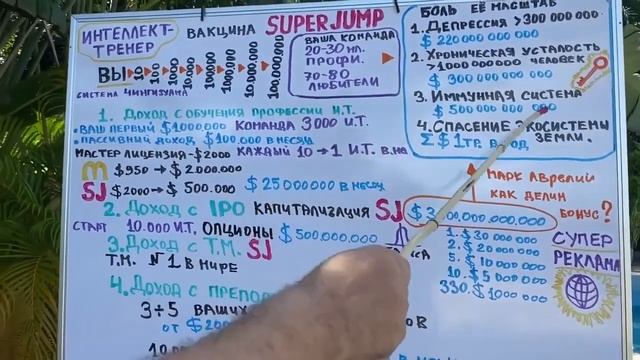 ИНТЕЛЛЕКТ-
ТРЕНЕР
ВАКЦИНА SUPERJUMP
ВЫ 10 100 1000 10.000 100.000 1000.000 10.000.000 100.000.000
СИСТЕМА ЧИНГИЗХАНА
ВАША КОМАНДА
20-30 мл.
ПРОФИ.
70-80
ЛЮБИТЕЛИ
БОЛЬ ЕЁ МАСШТАБ
1. ДЕПРЕССИЯ > 300 000 000
$ 220 000 000 000
2. ХРОНИЧЕСКАЯ УСТАЛОСТЬ
> 1000 000 000 ЧЕЛОВЕК
$ 300 000 000 000
3. ИММУННАЯ СИСТЕМА
$ 500 000 000 000
4. СПАСЕНИЕ ЭКОСИСТЕМЫ
Σ $ 1 ТР. В ГОД ЗЕМЛИ.
1. ДОХОД С ОБУЧЕНИЯ ПРОФЕССИИ И.Т.
• ВАШ ПЕРВЫЙ $1000000 КОМАНДА 3000 И.Т.
• ПАССИВНЫЙ ДОХОД $100.000 В МЕСЯЦ
МАСТЕР ЛИЦЕНЗИЯ - $2000 КАЖДЫЙ 10 → 1 И.Т. В МЕ
M $950 → $2.000.000
SJ $2000 → $500.000 $25000000 В МЕСЯЦ
2. ДОХОД С IPO КАПИТАЛИЗАЦИЯ SJ
СТАРТ 10.000 И.Т. ОПЦИОНЫ $500.000.000
3. ДОХОД С Т.М. SJ
Т.М. №1 В МИРЕ
4. ДОХОД С ПРЕПОД
3÷5 ВАШИХ
ОТ $200
МАРК АВРЕЛИЙ
КАК ДЕЛИЛ
БОНУС?
1. $30 000 000
2. $20 000 000
5. $10 000 000
10. $5 000 000
330. $1000 000
СУПЕР
РЕКЛАМА